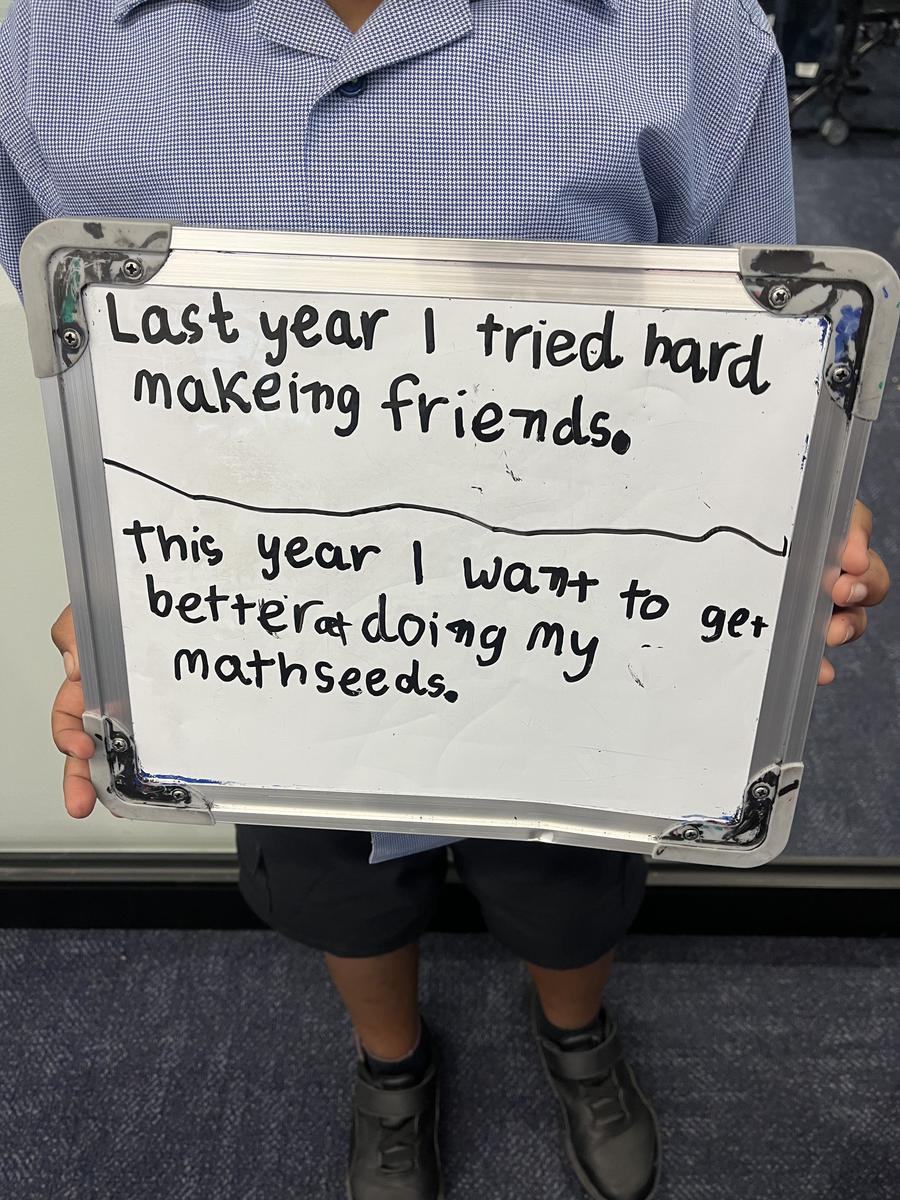 Last year I tried hard
makeing friends.
This year I want to get
better at doing my
mathseeds.